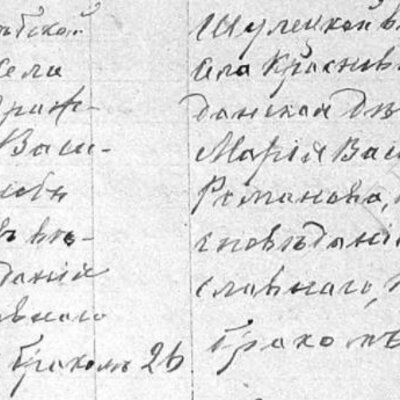 ской
села
Граж-
Васи-
въ вѣ-
даній
вного
бракомъ 26
Шулецкой в
села Красков
данская дѣ
Марія Вас
Романова,
сповѣданія
славнаго,
бракомъ